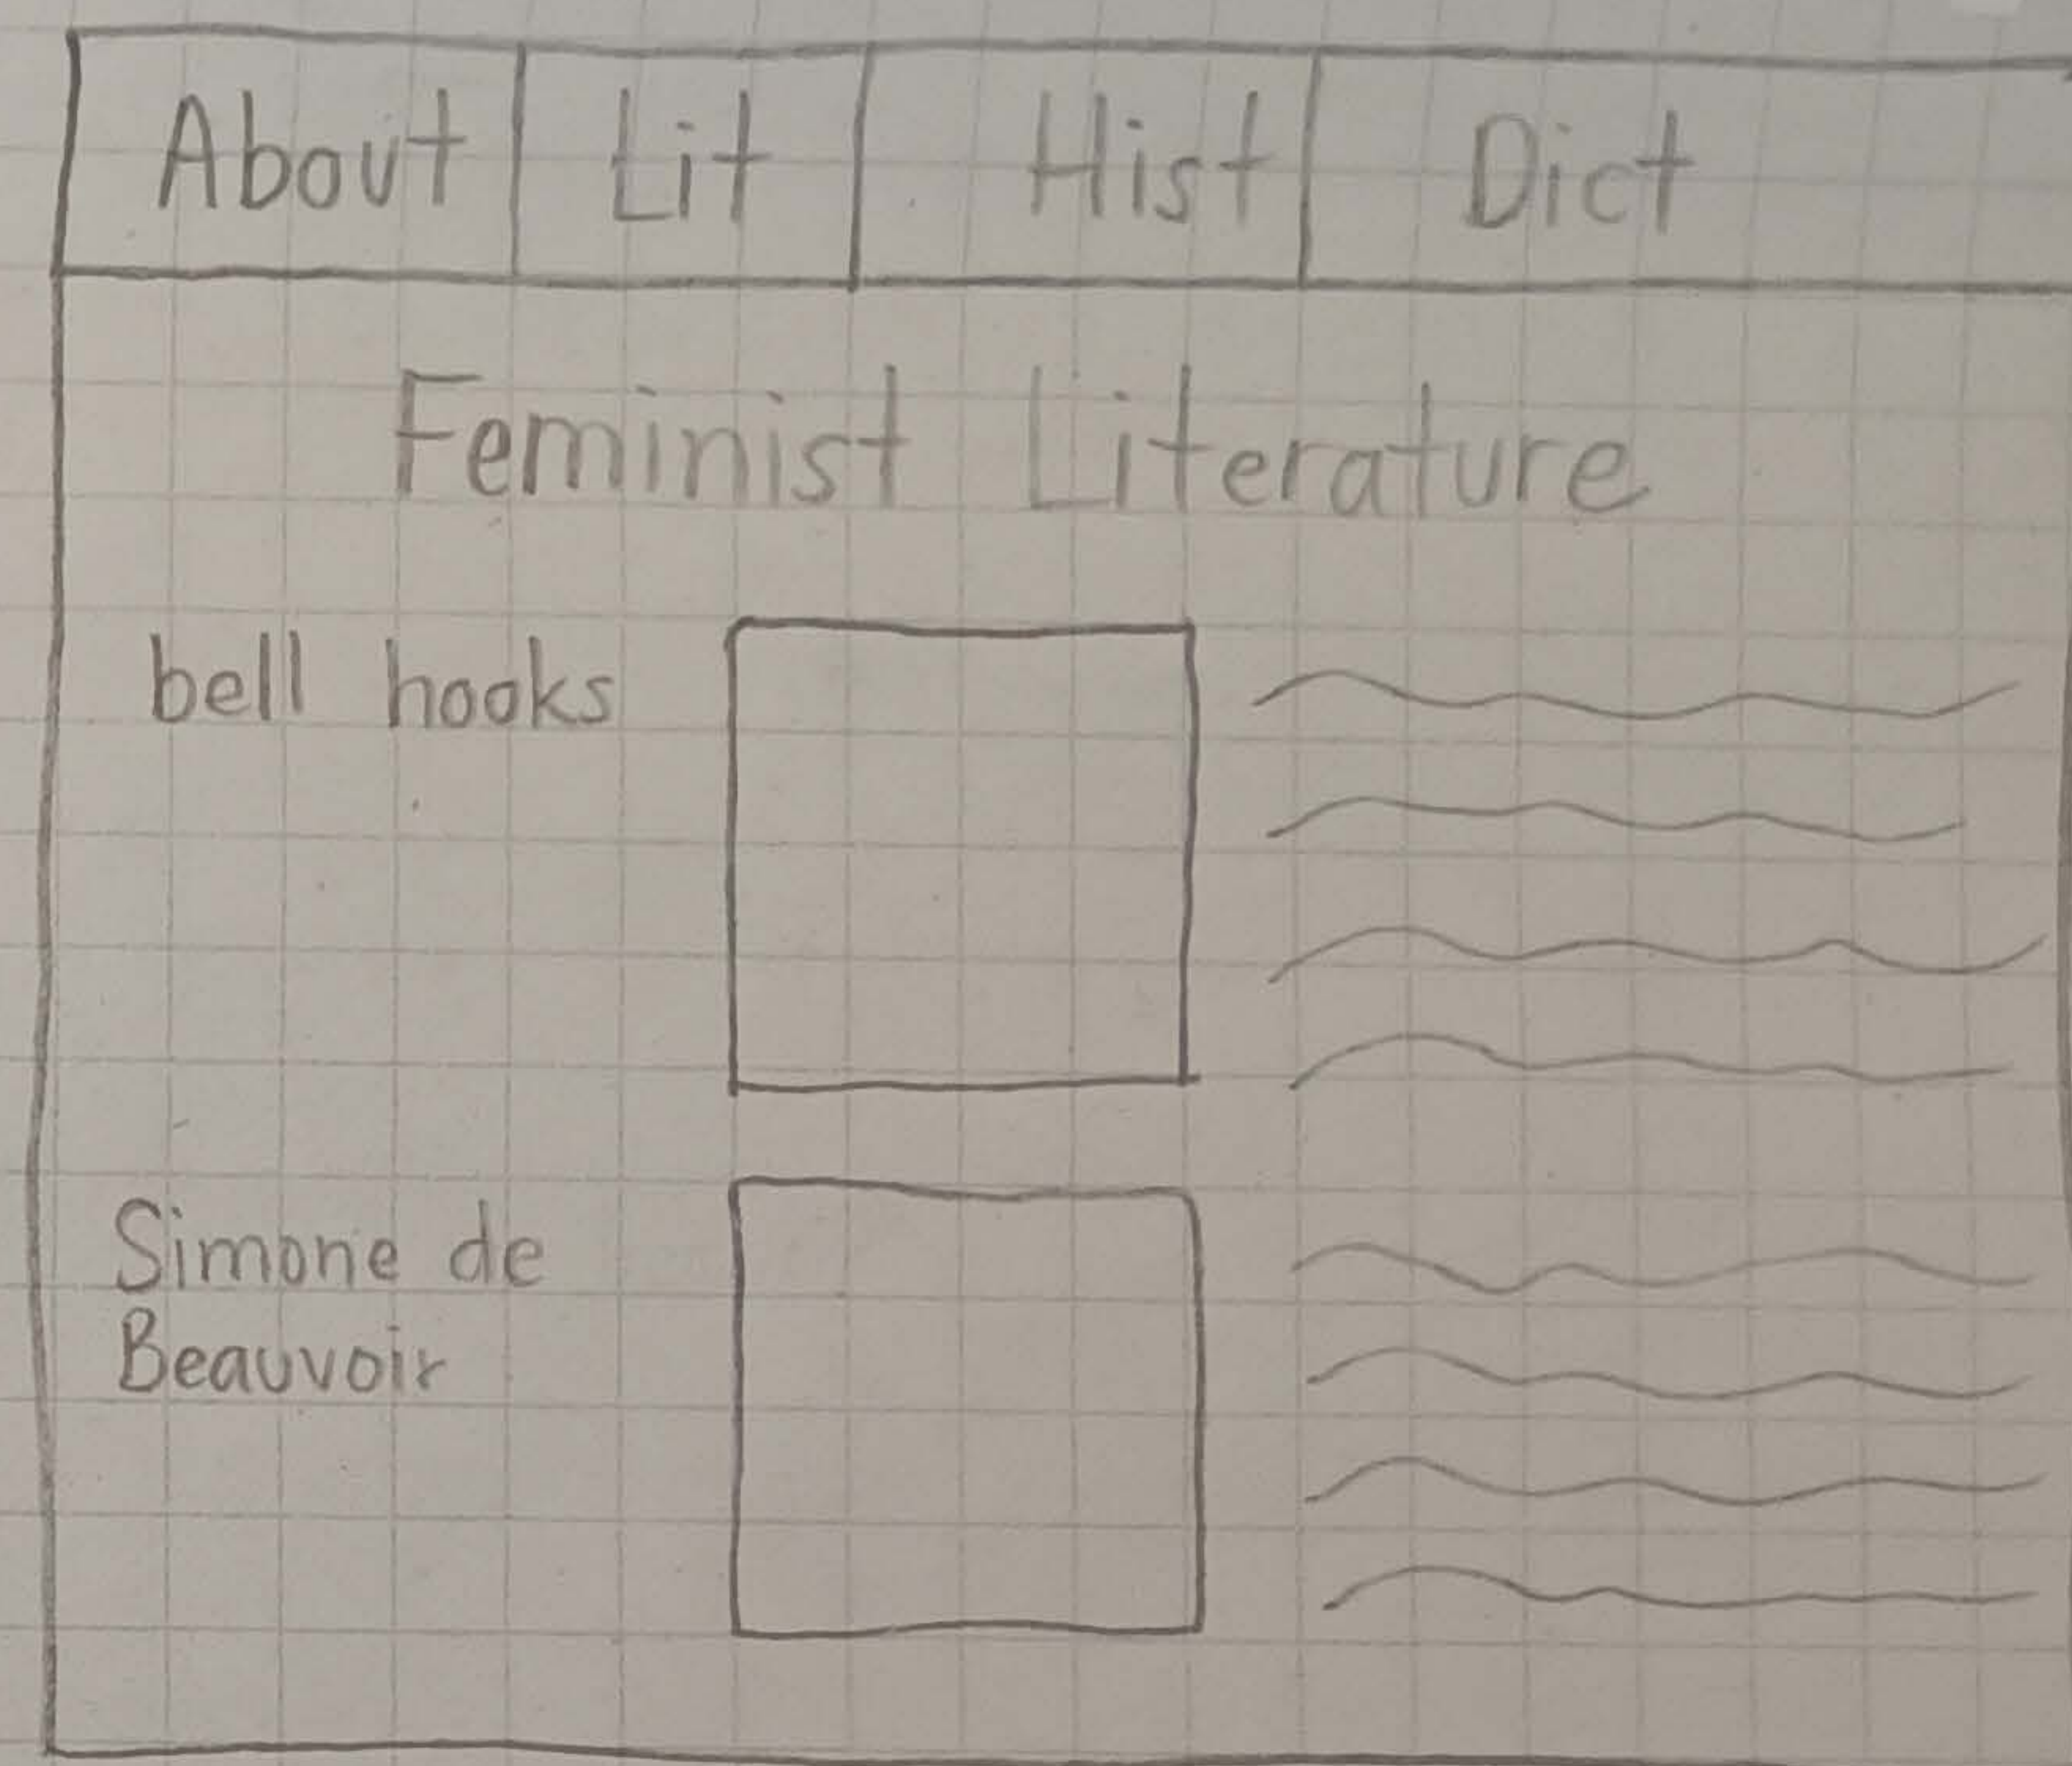 About Lit Hist Dict
Feminist Literature
bell hooks
Simone de
Beauvoir